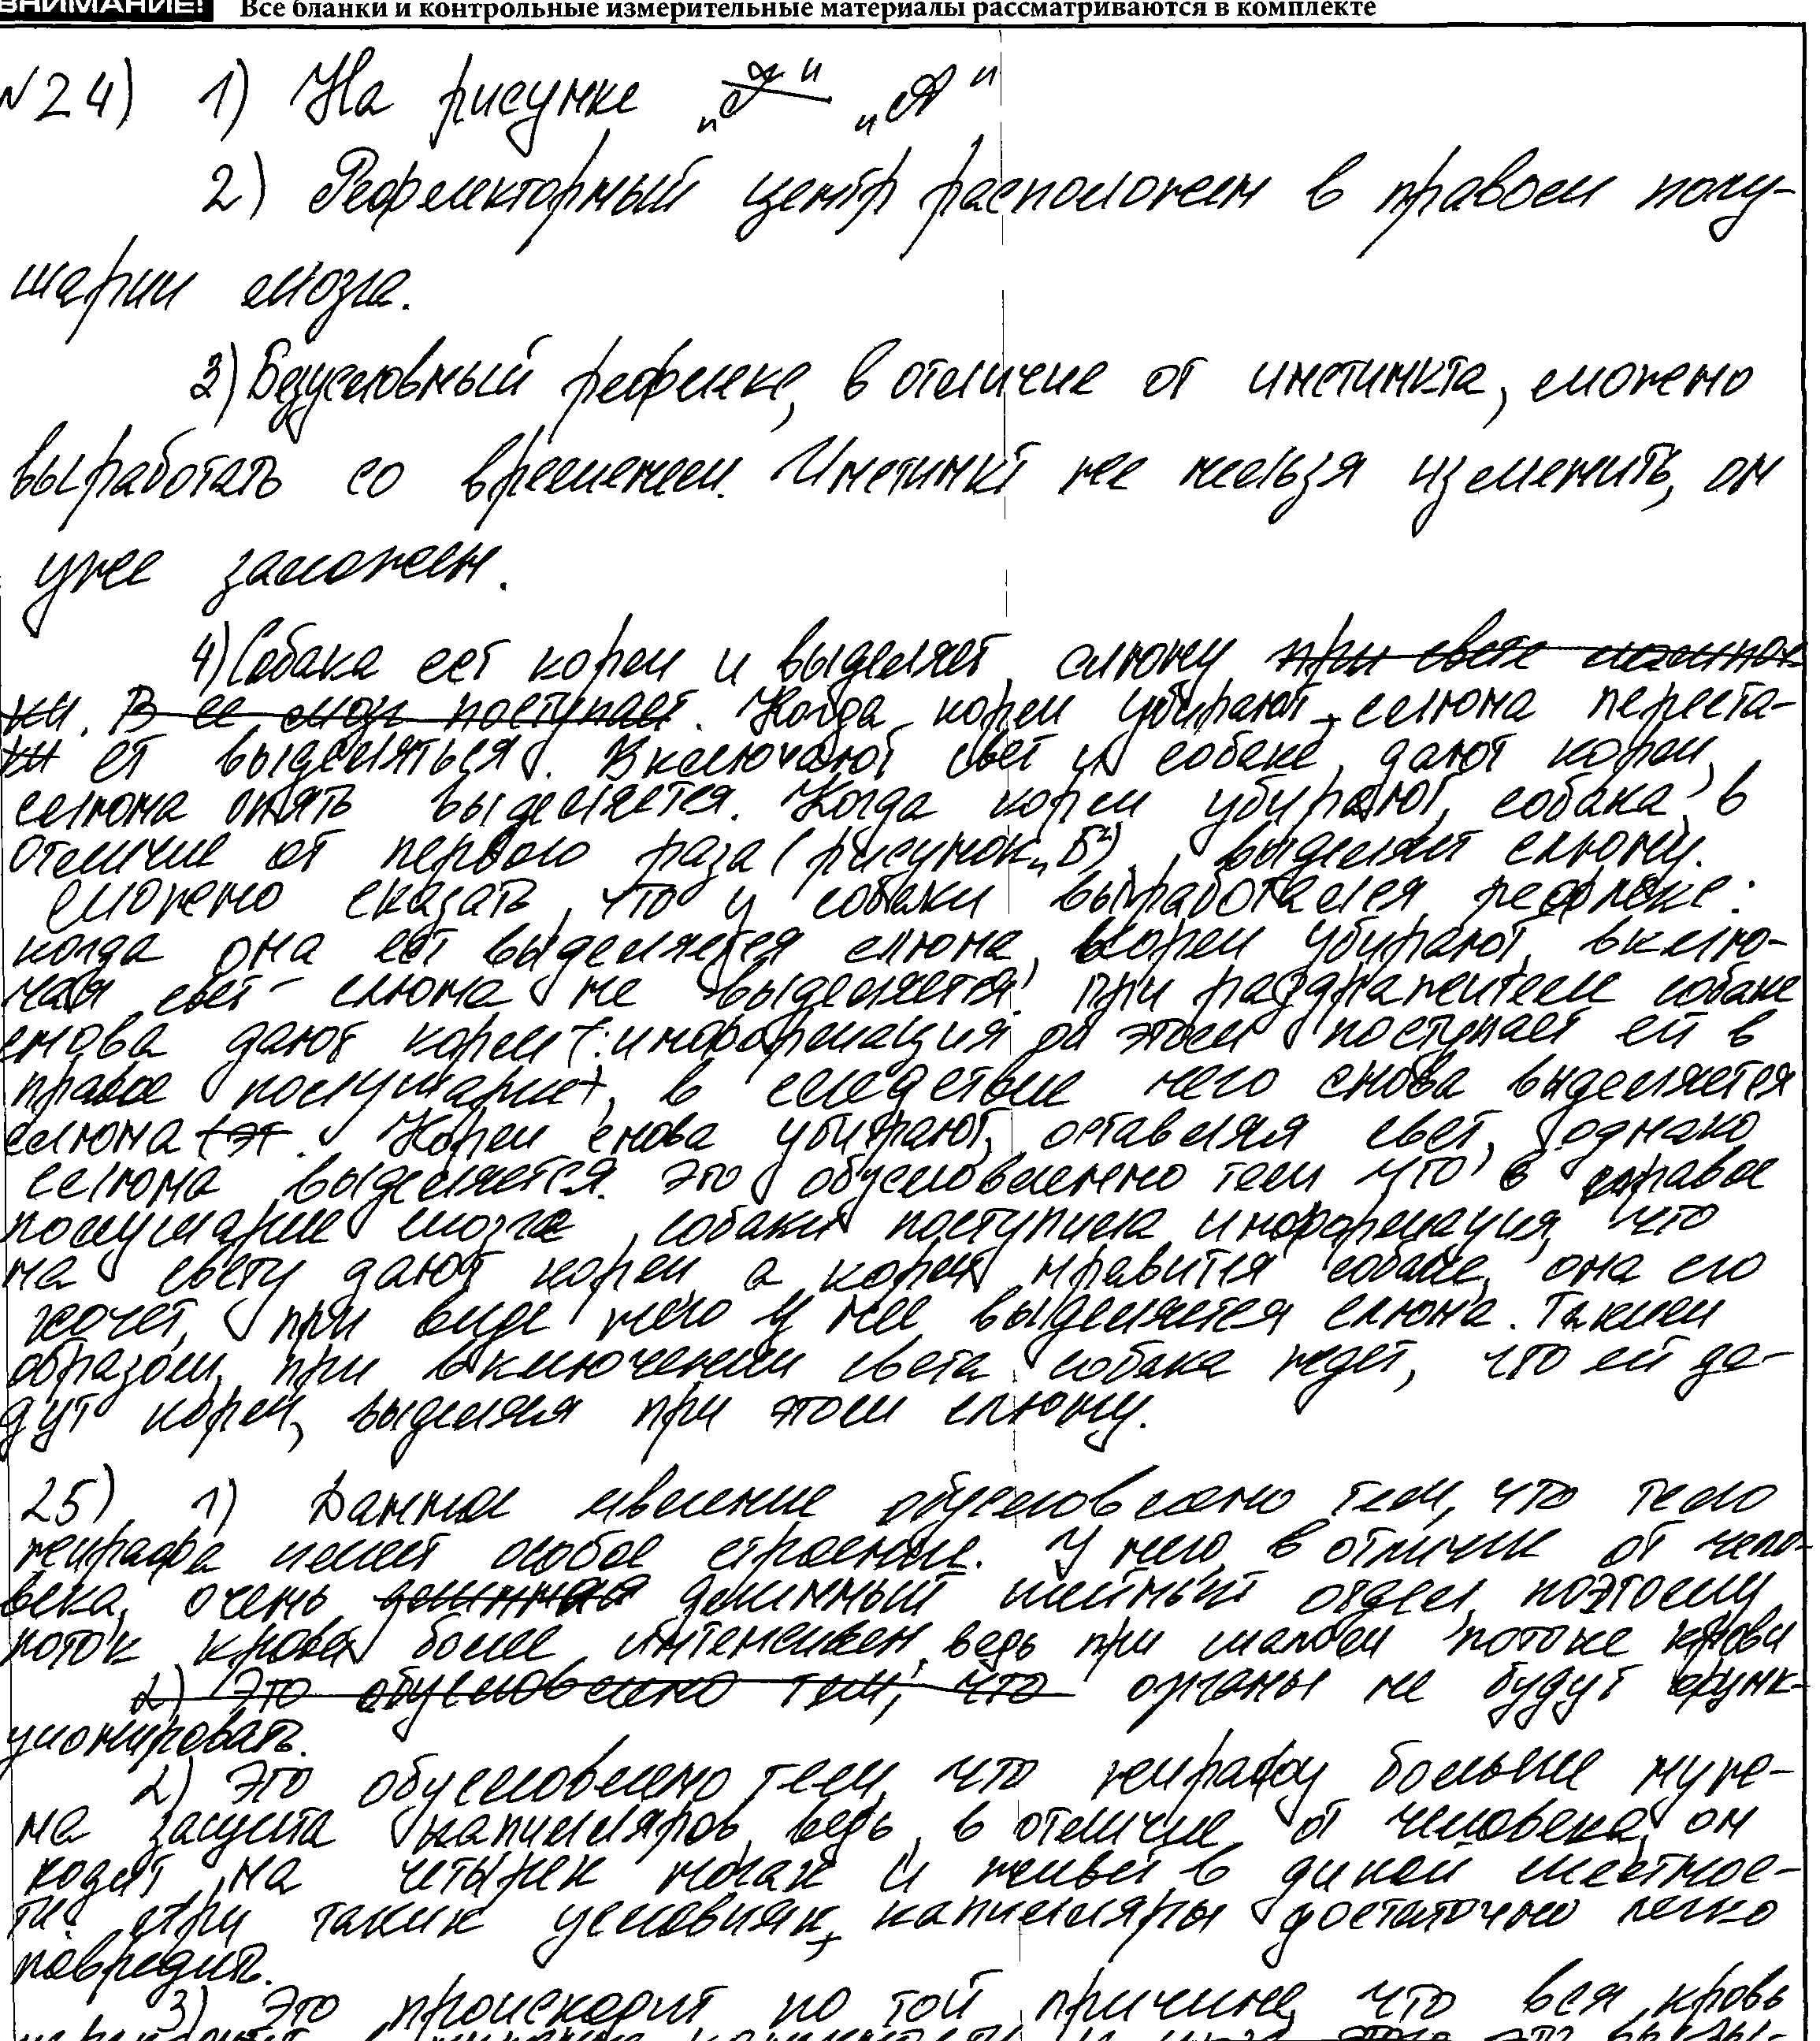 ВНИМАНИЕ! Все бланки и контрольные измерительные материалы рассматриваются в комплекте
№24) 1) На рисунке „А"
2) Рефлекторный центр расположен в правом полу-
шарии мозга.
3) Безусловный рефлекс, в отличие от инстинкта, можно
выработать со временем. Инстинкт же нельзя изменить, он
уже заложен.
4) Собака ест корм и выделяет слюну при свете лампоч-
ки. В ее мозг поступает. Когда корм убирают, слюна переста-
ет выделяться. Включают свет и собаке дают корм,
слюна опять выделяется. Когда корм убирают, собака, в
отличие от первого раза (рисунок „Б"), выделяет слюну.
Можно сказать, что у собаки выработался рефлекс:
когда она ест выделяется слюна, корм убирают, вклю-
чая свет - слюна не выделяется. При раздражителе собаке
снова дают корм: информация об этом поступает ей в
правое полушарие, в следствие чего снова выделяется
слюна (эт. Корм снова убирают, оставляя свет, однако
слюна выделяется. Это обусловленно тем что в правое
полушарие мозга собаки поступила информация, что
на свету дают корм а корм нравится собаке, она его
хочет, при виде чего у нее выделяется слюна. Таким
образом, при включении света собака ждет, что ей да-
дут корм, выделяя при этом слюну.
25) 1) Данное явление обусловлено тем, что тело
жирафа имеет особое строение. У него, в отличие от чело-
века, очень длинный шейный отдел, поэтому
поток крови более интенсивен, ведь при малом потоке крови
2) Это обусловлено тем, что органы не будут функ-
ционировать.
2) Это обусловлено тем, что жирафу больше нуж-
на защита капилляров, ведь, в отличие от человека, он
ходит на четырех ногах и живет в дикой местнос-
ти. При таких условиях, капилляры достаточно легко
повредить.
3) Это происходит по той причине, что вся кровь